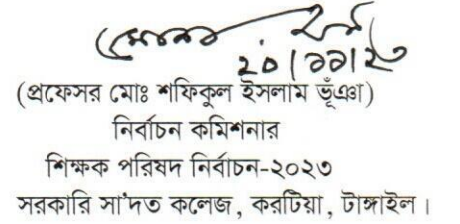 ২০।১১।২৩
(প্রফেসর মোঃ শফিকুল ইসলাম ভূঁঞা)
নির্বাচন কমিশনার
শিক্ষক পরিষদ নির্বাচন-২০২৩
সরকারি সা'দত কলেজ, করটিয়া, টাঙ্গাইল।